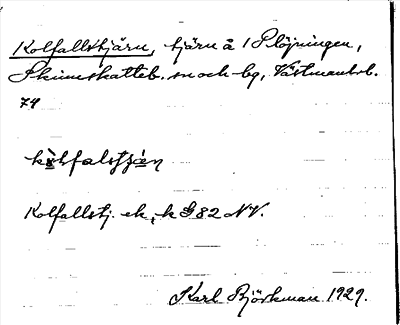 Kolfallstjärn, tjärn å 1 Plöjningen,
Skinnskatteb. sn och bg, Västmanl.
74
Kolfallstj. ek, k 82 NV.
Karl Björkman 1929.